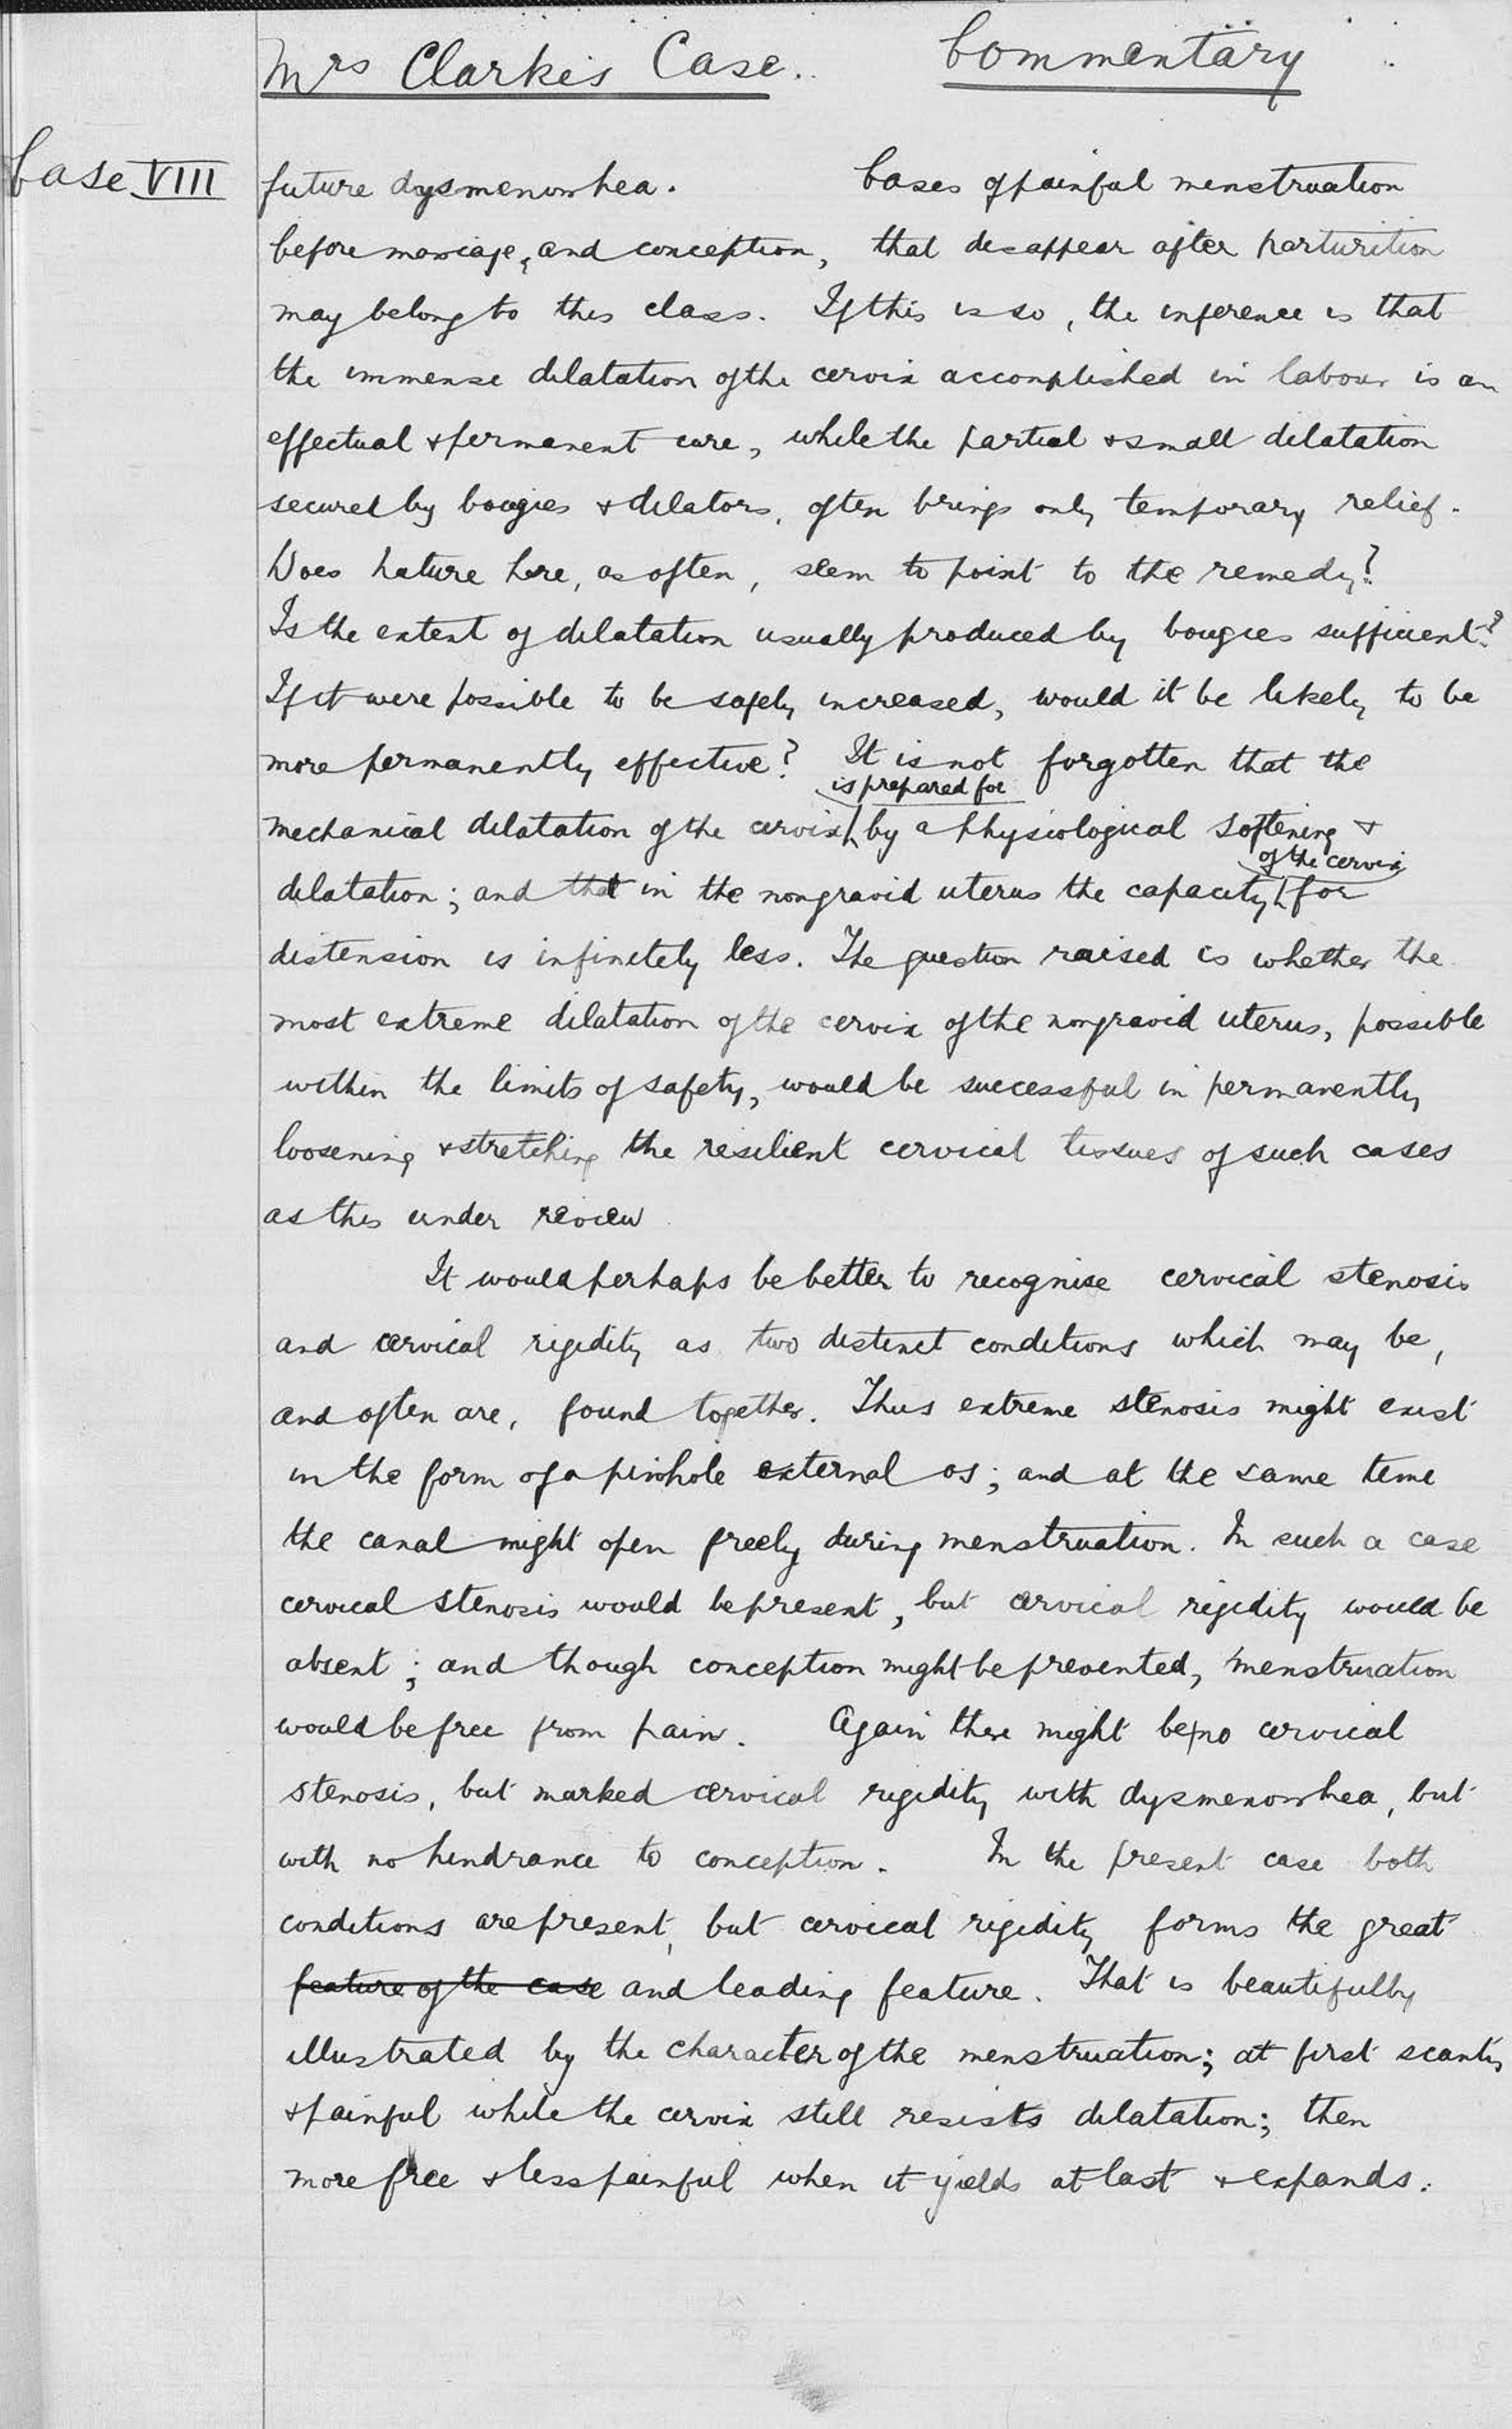 Mrs Clarke's Case. Commentary
Case VIII
future dysmenorrhea. Cases of painful menstruation
before marriage, and conception, that disappear after parturition
may belong to this class. If this is so, the inference is that
the immense dilatation of the cervix accomplished in labour is an
effectual & permanent cure, while the partial & small dilatation
secured by bougies & dilators, often brings only temporary relief.
Does Nature here, as often, seem to point to the remedy?
Is the extent of dilatation usually produced by bougies sufficient?
If it were possible to be safely increased, would it be likely to be
more permanently effective? It is not forgotten that the
is prepared for
mechanical dilatation of the cervix by a physiological softening &
of the cervix
dilatation; and that in the nongravid uterus the capacity for
distension is infinitely less. The question raised is whether the
most extreme dilatation of the cervix of the nongravid uterus, possible
within the limits of safety, would be successful in permanently
loosening & stretching the resilient cervical tissues of such cases
as this under review
It would perhaps be better to recognise cervical stenosis
and cervical rigidity as two distinct conditions which may be,
and often are, found together. Thus extreme stenosis might exist
in the form of a pinhole external os; and at the same time
the canal might open freely during menstruation. In such a case
cervical stenosis would be present, but cervical rigidity would be
absent; and though conception might be prevented, menstruation
would be free from pain. Again there might be no cervical
stenosis, but marked cervical rigidity with dysmenorrhea, but
with no hindrance to conception. In the present case both
conditions are present, but cervical rigidity forms the great
feature of the case and leading feature. That is beautifully
illustrated by the character of the menstruation; at first scanty
& painful while the cervix still resists dilatation; then
more free & less painful when it yields at last & expands.